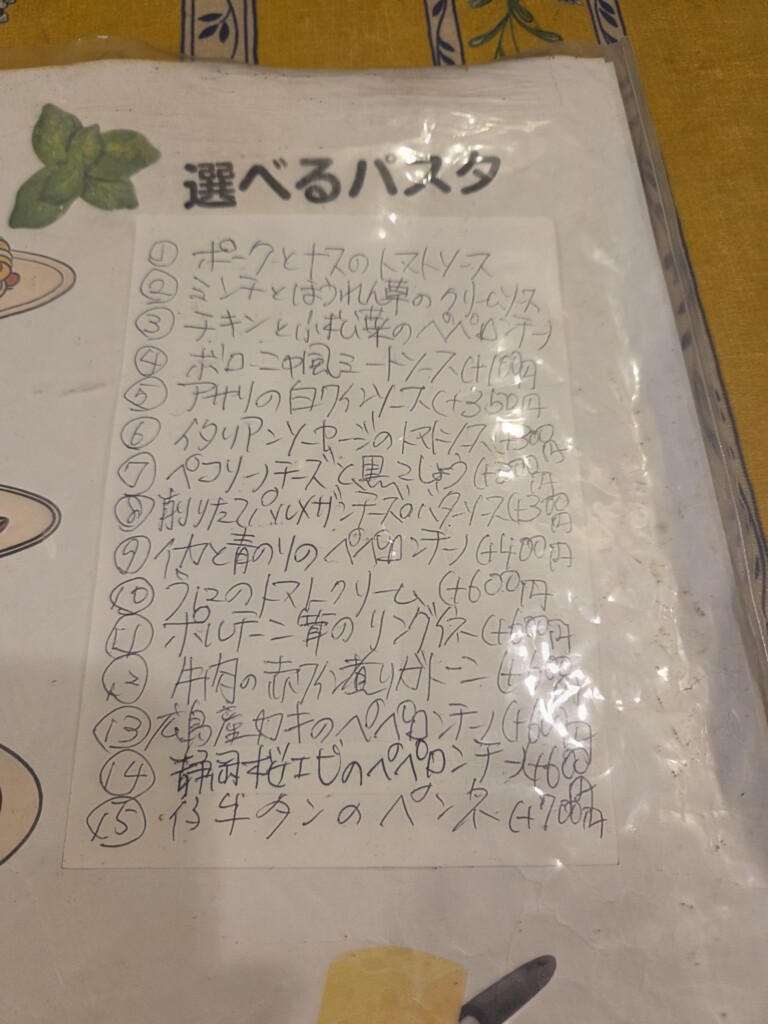 選べるパスタ
① ポークとナスのトマトソース
② ミンチとほうれん草のクリームソース
③ チキンと小松菜のペペロンチーノ
④ ボローニャ風ミートソース(+100円
⑤ アサリの白ワインソース(+350円
⑥ イタリアンソーセージのトマトソース(+300円
⑦ ペコリーノチーズと黒こしょう(+200円
⑧ 削りたてパルメザンチーズのバターソース(+300円
⑨ イカと青のりのペペロンチーノ(+400円
⑩ うにのトマトクリーム(+600円
⑪ ポルチーニ茸のリングイネ(+600円
⑫ 牛肉の赤ワイン煮リガトーニ
⑬ 広島産カキのペペロンチーノ(+600円
⑭ 静岡桜エビのペペロンチーノ(+600円
⑮ 仔牛タンのペンネ(+700円